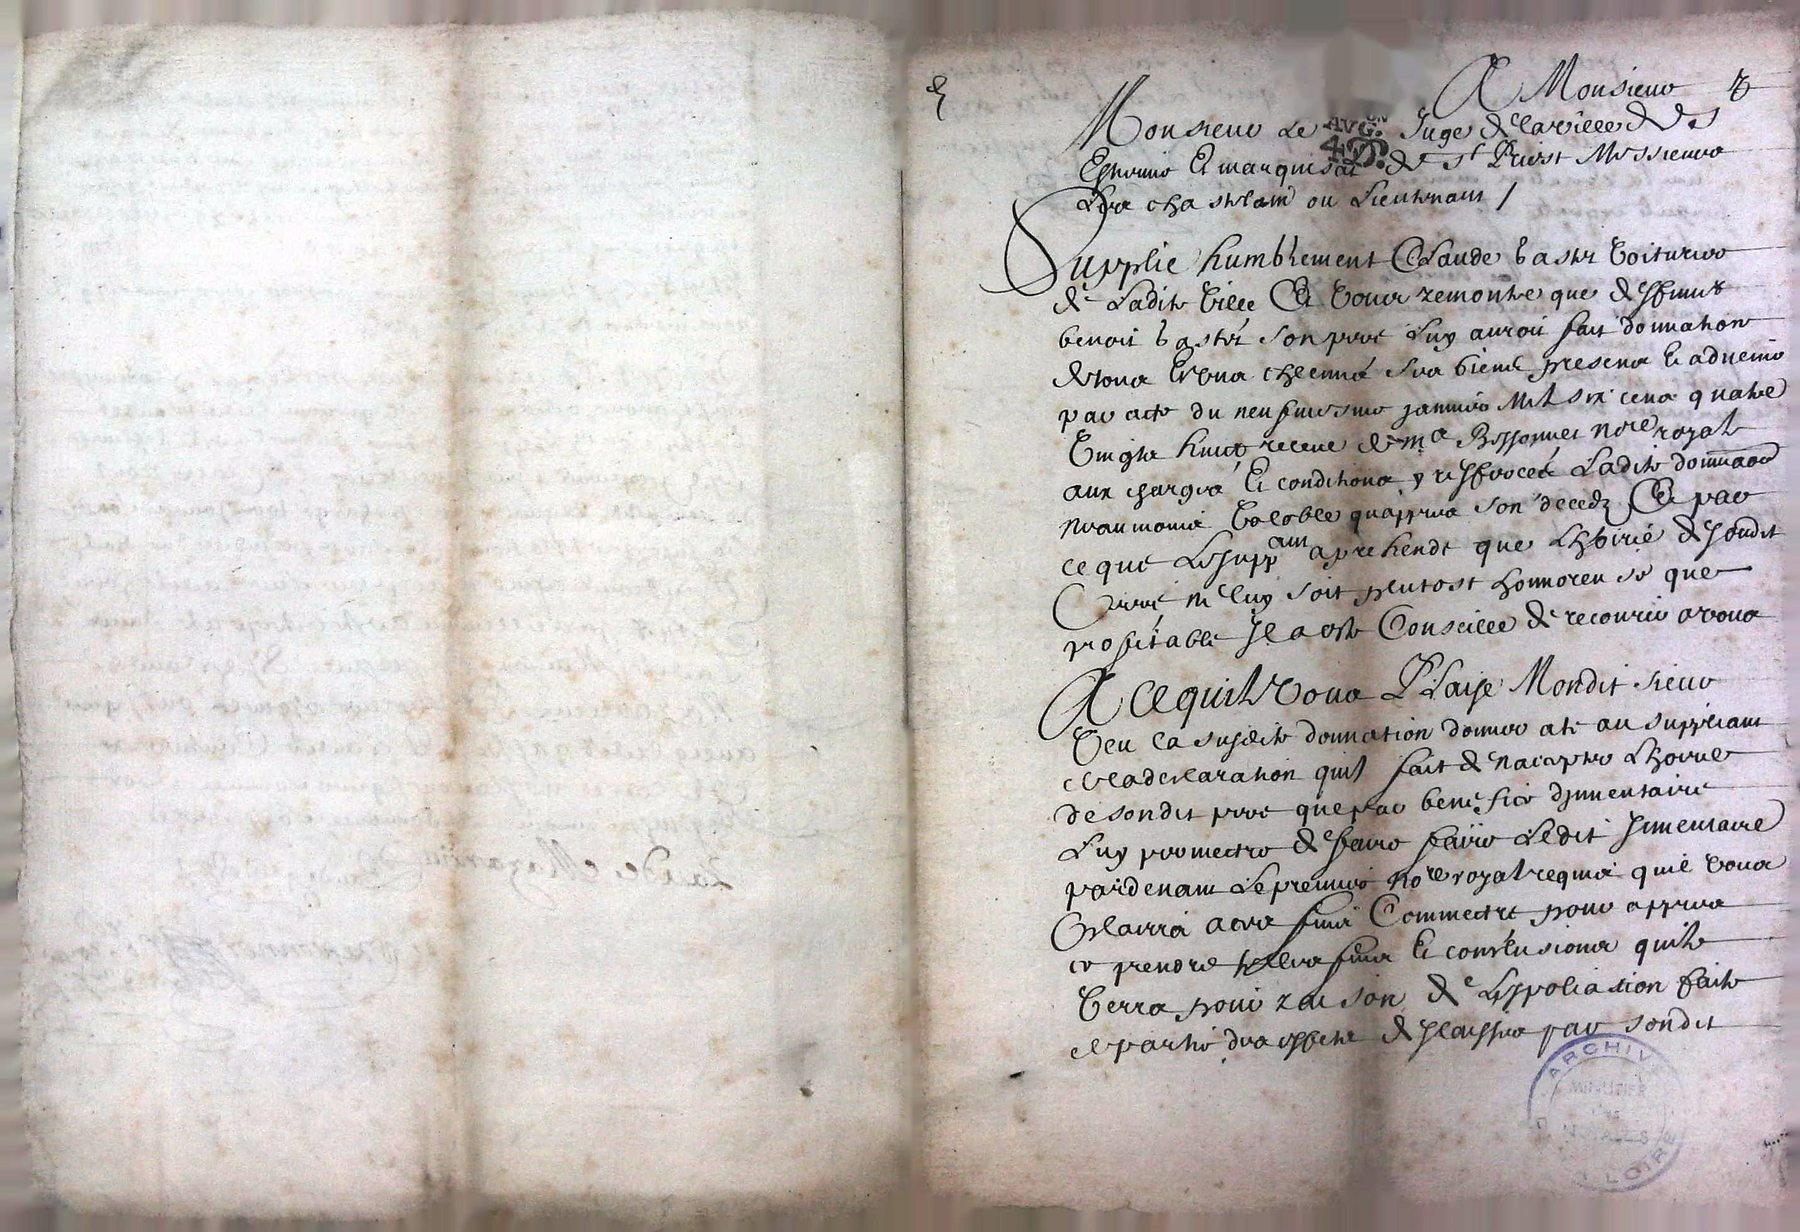 A Monsieur
Monsieur Le Juge de la ville de St
Estienne Et marquisat de St Priest Messieurs
Les chastelain ou Lieutenant /
AVG.ON
4 D.
Supplie humblement Claude bastie Voiturier
de Ladite Ville Et Vous remontre que deffunct
benoit bastie son pere Luy auroit fait donnation
de tous Et Vns chacuns ses biens presens Et aduenir
par acte du neufuiesme januier Mil six cens quatre
Vingts huict receue de me notre royal
aux charges Et conditions y referées Ladite donnaon
neanmoins Valable qu'apres son decedz Et par
ce que Le suppant aprehende que Lhoirie de sondit
Pere ne luy soit plutost honnoreuse que
profitable Il a este Conseille de recourir a vous
A Ce quil Vous Plaise Mondit sieur
Veu La susdite donnation donner ate au suppliant
de la declaration quil fait de nacepter Lhoirie
de sondit pere que par benefice dJnuentaire
Luy permectre de faire faire Ledit Jnuentaire
pardeuant Le premier nore royal requis quil Vous
Plaira a ces fins Commectre pour appres
ce prendre telles fins Et conclusions quil
Verra pour raison de Lespoliation faite
de partie des effects delaisses par sondit
ARCHIV
MINUTIER
DES
NOTAIRES
LOIRE